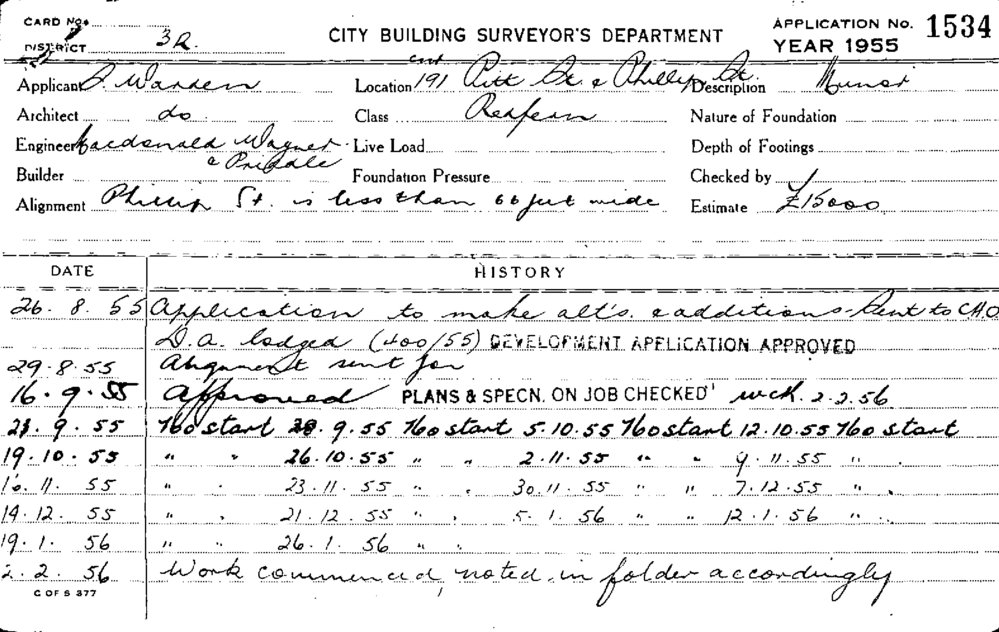 CARD No.
DISTRICT 3R. CITY BUILDING SURVEYOR'S DEPARTMENT APPLICATION No. 1534
YEAR 1955
Applicant J. Warden Location cnr 191 Pitt St. & Phillip St. Description Minor
Architect do Class Redfern Nature of Foundation
Engineer Macdonald Wagner & Priddle Live Load Depth of Footings
Builder Foundation Pressure Checked by
Alignment Phillip St. is less than 66 feet wide Estimate £15000
DATE HISTORY
26. 8. 55 Application to make alt's. & additions - Sent to C.H.O.
D.A. lodged (400/55) DEVELOPMENT APPLICATION APPROVED
29.8.55 Alignment sent for
16.9.55 Approved PLANS & SPECN. ON JOB CHECKED 2.2.56
23. 9. 55 No start 28. 9. 55 No start 5.10.55 No start 12.10.55 No start
19. 10. 55 " " 26.10.55 " " 2.11.55 " " 9.11.55 " "
16. 11. 55 " " 23.11.55 " " 30.11.55 " " 7.12.55 " "
14. 12. 55 " " 21.12.55 " " 5.1.56 " " 12.1.56 " "
19. 1. 56 " " 26.1.56 " "
2. 2. 56 Work commenced, noted in folder accordingly
C OF S 377